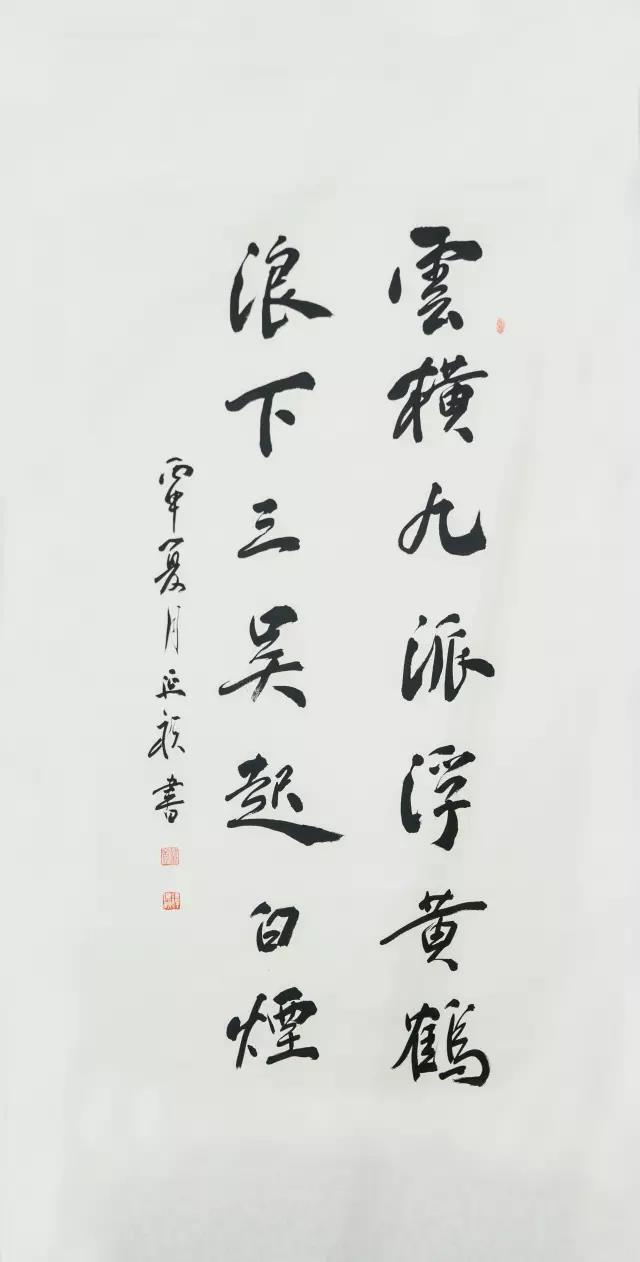 雲橫九派浮黃鶴
浪下三吳起白煙
丙申夏月延禎書